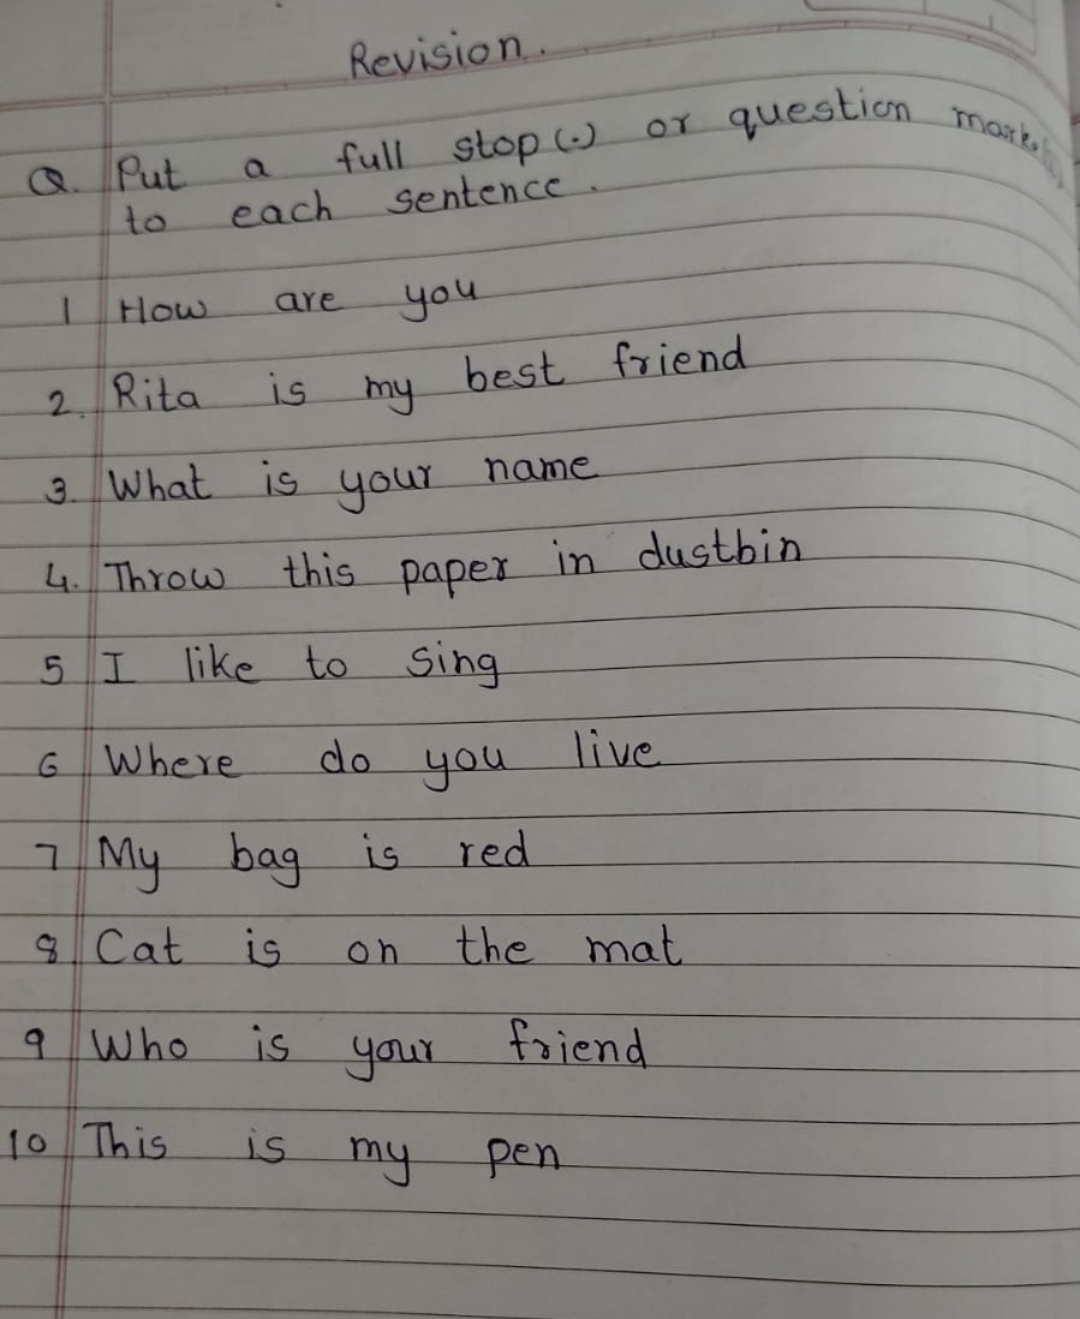 Revision.
Q. Put a full stop (.) or question mark
to each sentence.
1 How are you
2. Rita is my best friend
3. What is your name
4. Throw this paper in dustbin
5 I like to sing
6 Where do you live
7 My bag is red
8 Cat is on the mat
9 Who is your friend
10 This is my pen